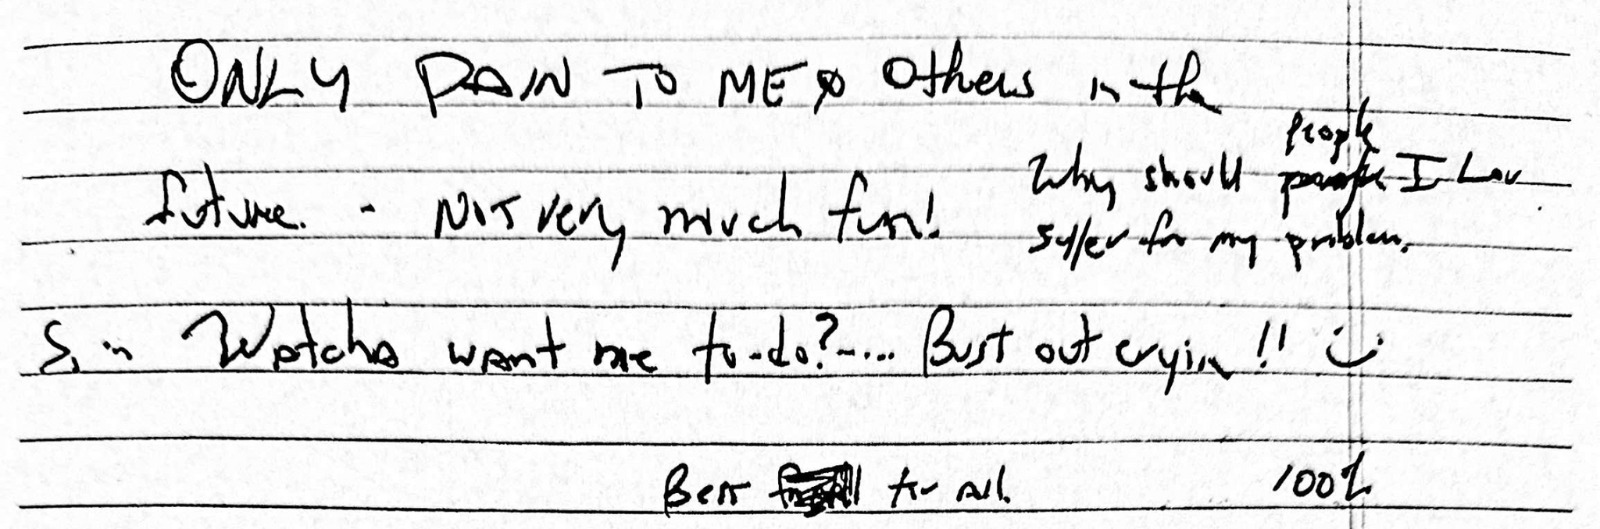 ONLY PAIN TO ME & Others in the
future. - NOT very much fun!
Why should people I Lov
suffer for my problem.
So .. Watcha want me to-do?-... Bust out cryin!! :)
Best for all. 100%